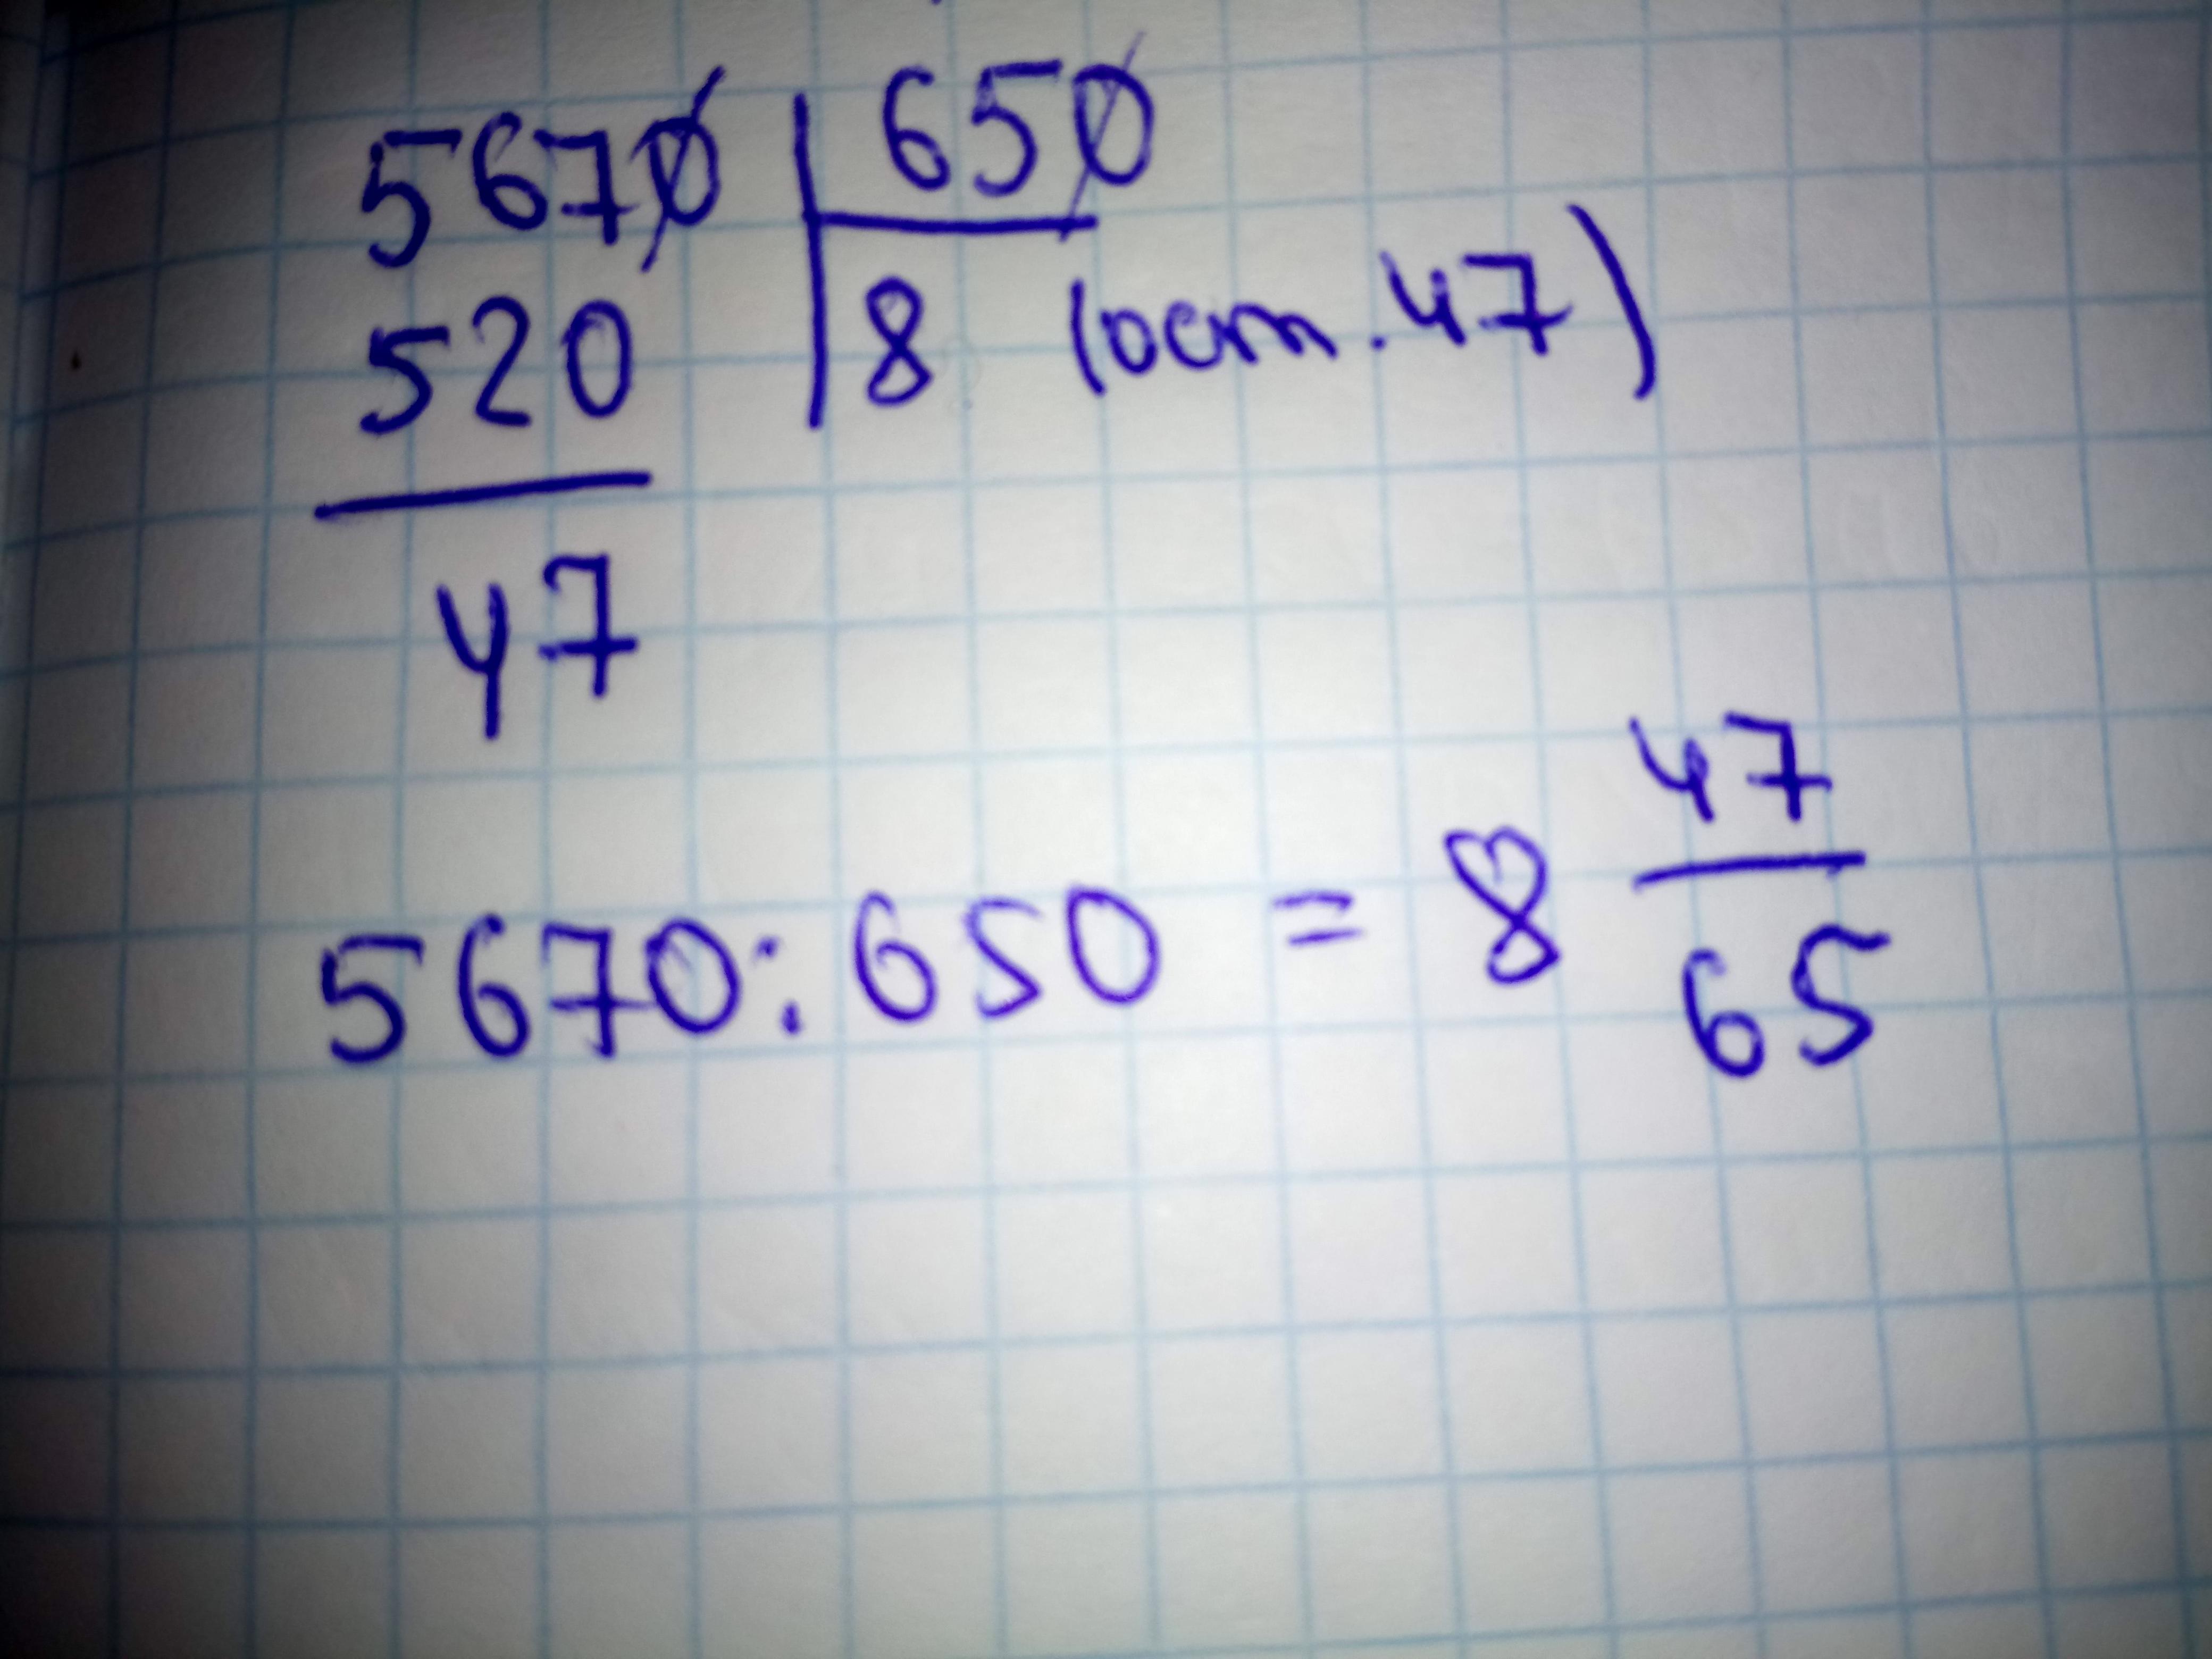 5670 650
520 8 (ост. 47)
47
5670 : 650 = 8 47/65